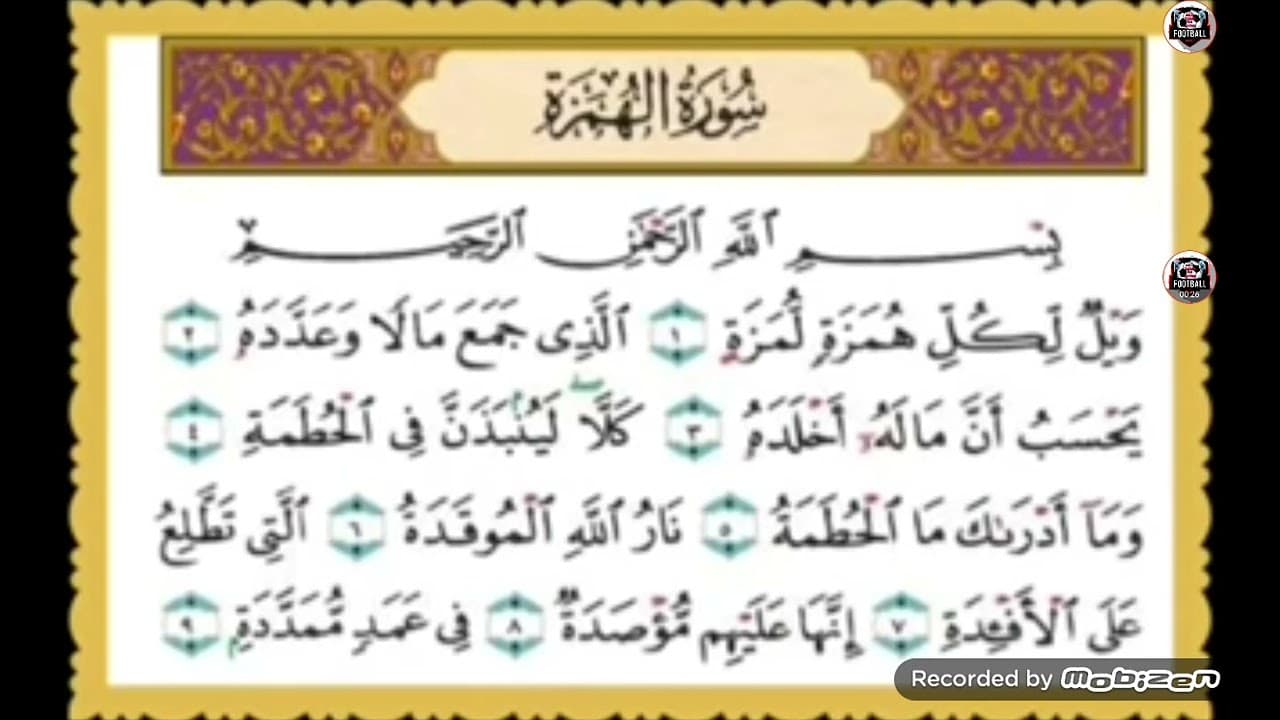 سُورَةُ الهُمَزَةِ
بِسْمِ ٱللَّهِ ٱلرَّحْمَٰنِ ٱلرَّحِيمِ
وَيْلٌ لِّكُلِّ هُمَزَةٍ لُّمَزَةٍ ١ ٱلَّذِى جَمَعَ مَالًا وَعَدَّدَهُۥ ٢
يَحْسَبُ أَنَّ مَالَهُۥٓ أَخْلَدَهُۥ ٣ كَلَّا ۖ لَيُنۢبَذَنَّ فِى ٱلْحُطَمَةِ ٤
وَمَآ أَدْرَىٰكَ مَا ٱلْحُطَمَةُ ٥ نَارُ ٱللَّهِ ٱلْمُوقَدَةُ ٦ ٱلَّتِى تَطَّلِعُ
عَلَى ٱلْأَفْـِٔدَةِ ٧ إِنَّهَا عَلَيْهِم مُّؤْصَدَةٌ ٨ فِى عَمَدٍ مُّمَدَّدَةٍۭ ٩
FOOTBALL
FOOTBALL
00:26
Recorded by Mobizen